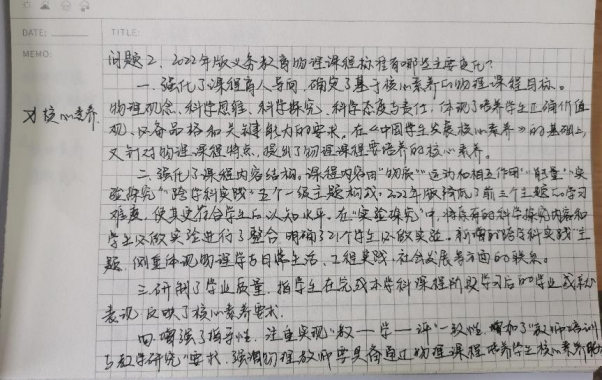 DATE:
TITLE:
MEMO:
问题2. 2022年版义务教育物理课程标准有哪些主要变化?
一. 强化了课程育人导向, 确定了基于核心素养的物理课程目标。
对核心素养.
物理观念、科学思维、科学探究、科学态度与责任, 体现了培养学生正确价值
观、必备品格和关键能力的要求。在《中国学生发展核心素养》的基础上,
又针对物理课程特点, 提出了物理课程要培养的核心素养。
二. 强化了课程内容结构。课程内容由"物质""运动和相互作用""能量""实
验探究""跨学科实践"五个一级主题构成, 2022年版降低了前三个主题的学习
难度, 使其更符合学生的认知水平。在"实验探究"中, 将原有的科学探究内容和
学生必做实验进行了整合, 明确了21个学生必做实验。新增的跨学科实践主
题, 侧重体现物理学与日常生活、工程实践、社会发展等方面的联系。
三. 研制了学业质量, 指学生在完成本学科课程阶段学习后的学业成就
表现, 反映了核心素养要求.
四. 增强了指导性, 注重实现"教—学—评"一致性, 增加了"教师培训
与教学研究"要求, 强调物理教师要具备通过物理课程培养学生核心素养